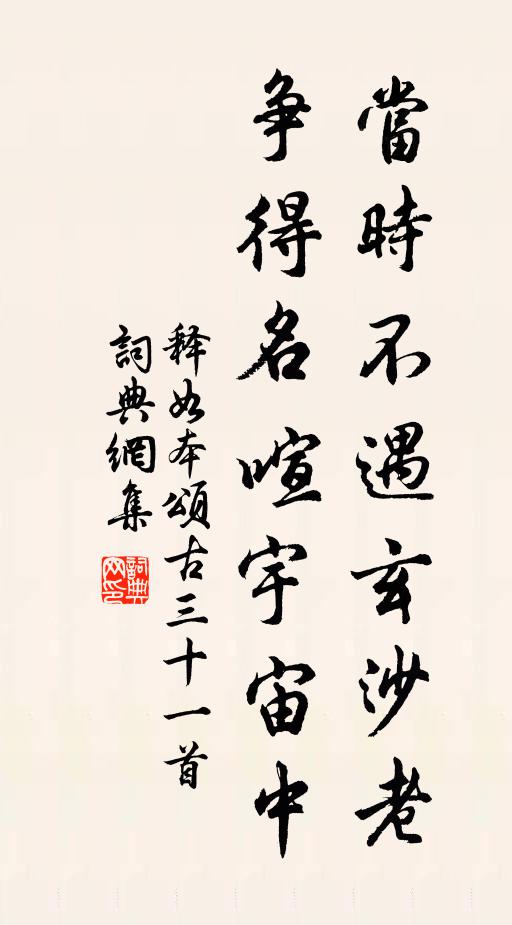 當時不遇玄沙老
爭得名喧宇宙中
釋如本頌古三十一首
詞典網集
詞典网印